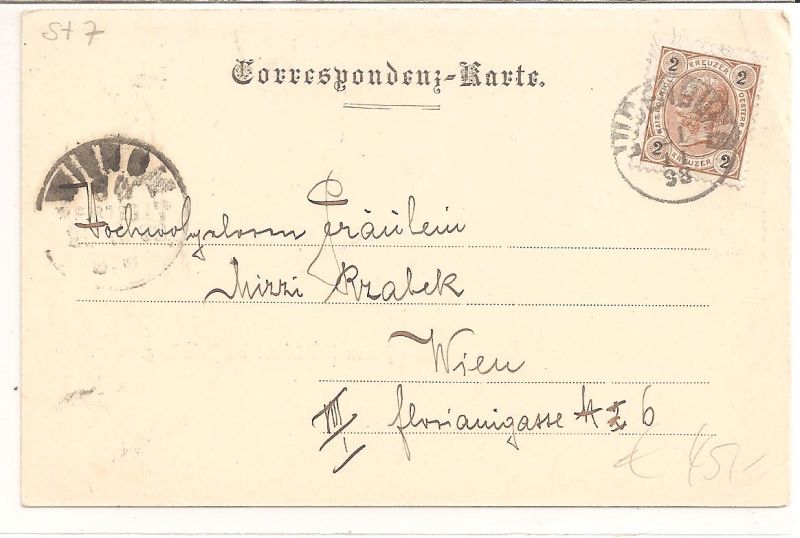 St 7
Correspondenz-Karte.
2 KREUZER 2
2 KREUZER 2
98
Hochwohlgeboren Fräulein
Mizzi Rzabek
Wien
VIII/1 Florianigasse 46
€ 45,-